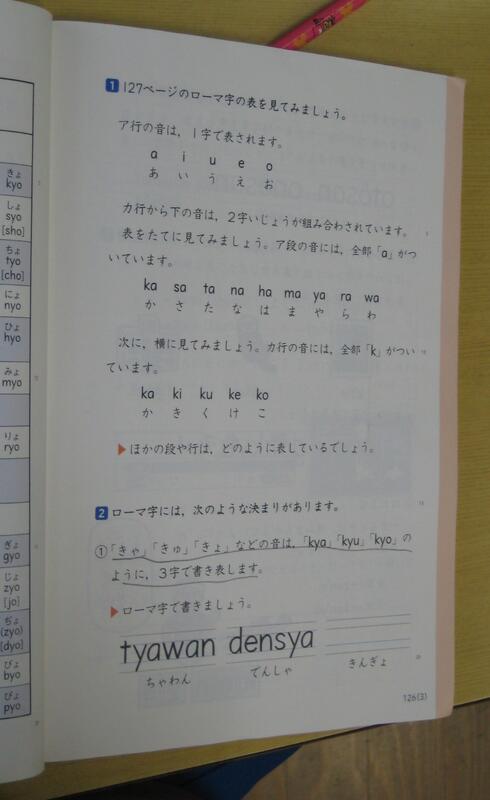 きょ
kyo
しょ
syo
[sho]
ちょ
tyo
[cho]
にょ
nyo
ひょ
hyo
みょ
myo
りょ
ryo
ぎょ
gyo
じょ
zyo
[jo]
ぢょ
(zyo)
[dyo]
びょ
byo
ぴょ
pyo
1 127ページのローマ字の表を見てみましょう。
ア行の音は、1字で表されます。
a i u e o
あ い う え お
カ行から下の音は、2字いじょうが組み合わされています。
表をたてに見てみましょう。ア段の音には、全部「a」がつ
いています。
ka sa ta na ha ma ya ra wa
か さ た な は ま や ら わ
次に、横に見てみましょう。カ行の音には、全部「k」がつい
ています。
ka ki ku ke ko
か き く け こ
▶ほかの段や行は、どのように表しているでしょう。
2 ローマ字には、次のような決まりがあります。
①「きゃ」「きゅ」「きょ」などの音は、「kya」「kyu」「kyo」の
ように、3字で書き表します。
▶ローマ字で書きましょう。
tyawan densya
ちゃわん でんしゃ きんぎょ
126(3)